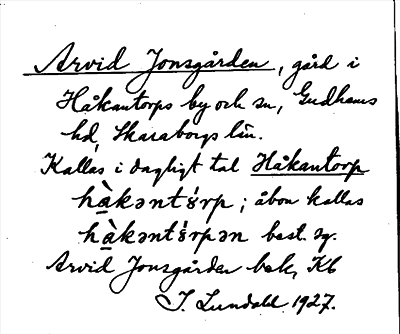 Arvid Jonsgården, gård i
Håkantorps by och sn, Gudhems
hd, Skaraborgs län.
Kallas i dagligt tal Håkantorp
hàkənt'srp; åbon kallas
hàkənt'srpən best. sg.
Arvid Jonsgården bek, Kb
I. Lundahl 1927.